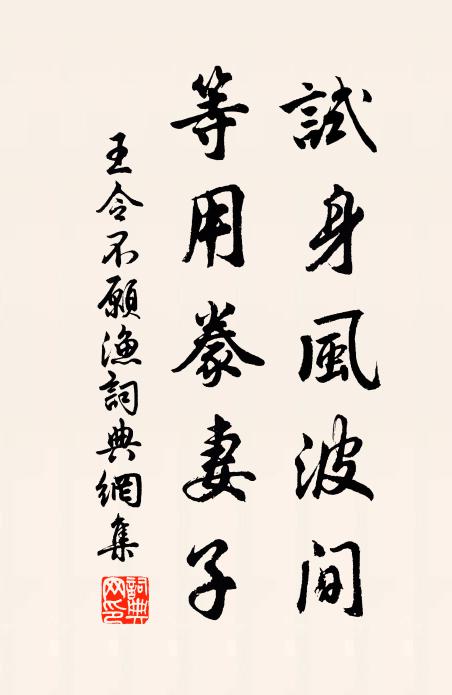 試身風波間
等用豢妻子
王令不願漁詞典網集
詞典
网印